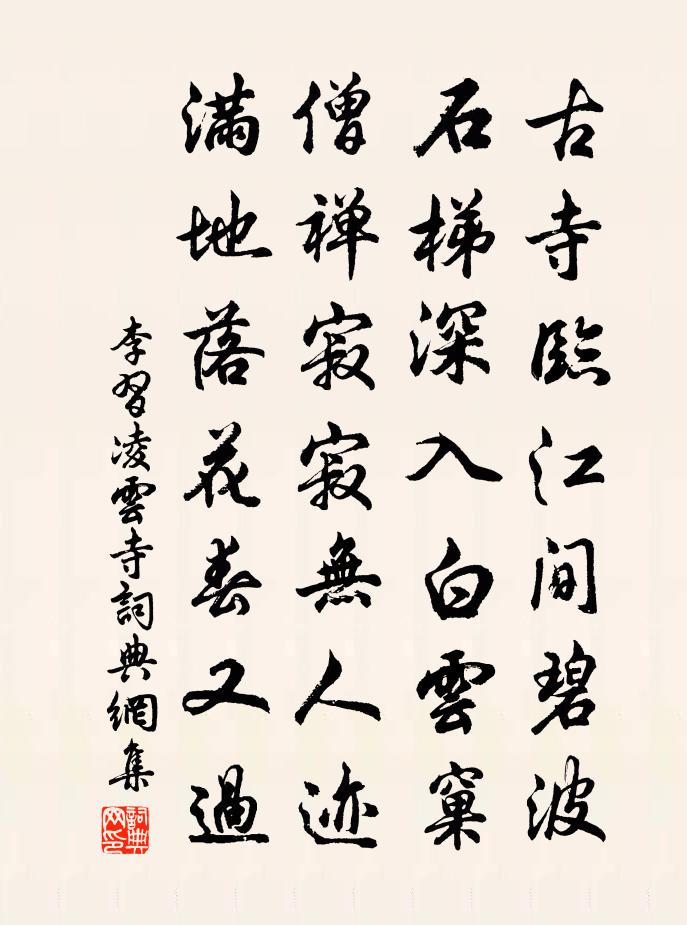 古寺臨江間碧波
石梯深入白雲窠
僧禅寂寂無人迹
滿地落花春又過
李習凌雲寺詞典網集
詞典网印